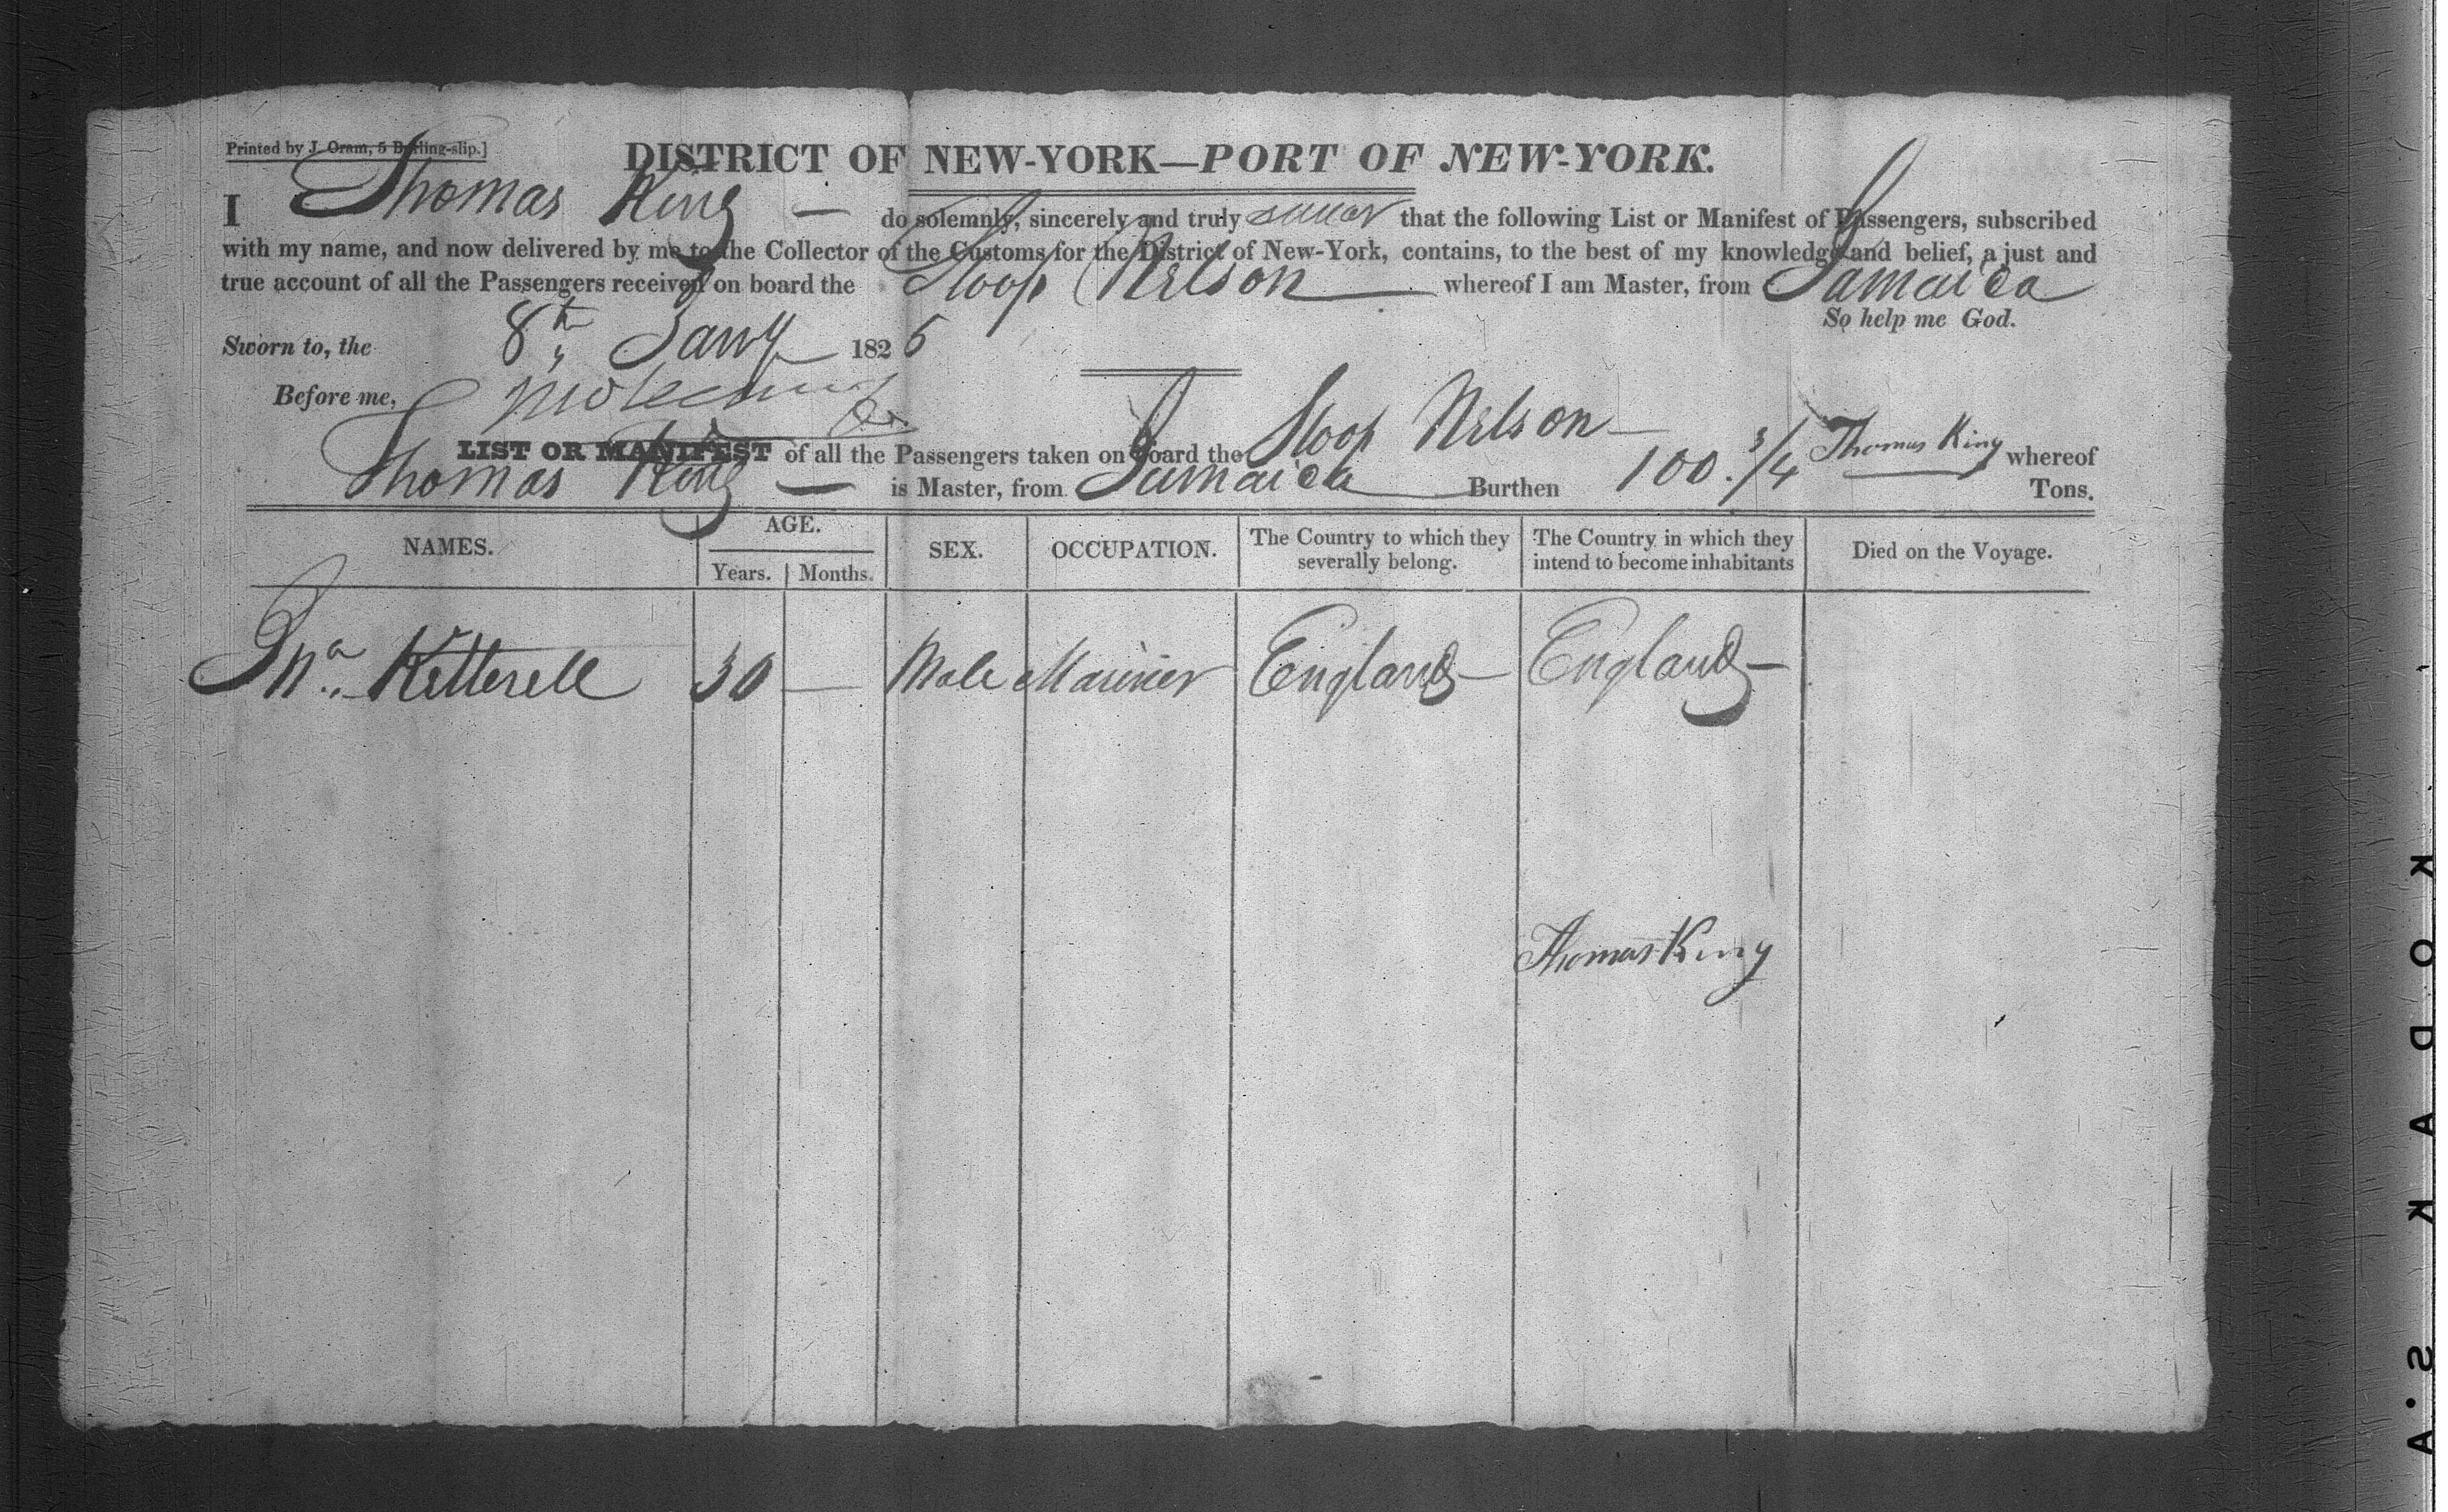 Printed by J. Oram, 5 Burling-slip.]
DISTRICT OF NEW-YORK—PORT OF NEW-YORK.
I Thomas King — do solemnly, sincerely and truly swear that the following List or Manifest of Passengers, subscribed
with my name, and now delivered by me to the Collector of the Customs for the District of New-York, contains, to the best of my knowledge and belief, a just and
true account of all the Passengers received on board the Sloop Nelson whereof I am Master, from Jamaica
So help me God.
Sworn to, the 8th Jany 1826
Before me,
LIST OR MANIFEST of all the Passengers taken on board the Sloop Nelson Thomas King whereof
Thomas King — is Master, from Jamaica Burthen 100.3/4 Tons.
NAMES. AGE. SEX. OCCUPATION. The Country to which they severally belong. The Country in which they intend to become inhabitants Died on the Voyage.
Years. Months.
Jna Ketterell 30 — Male Mariner England — England —
Thomas King
KODAK S.A